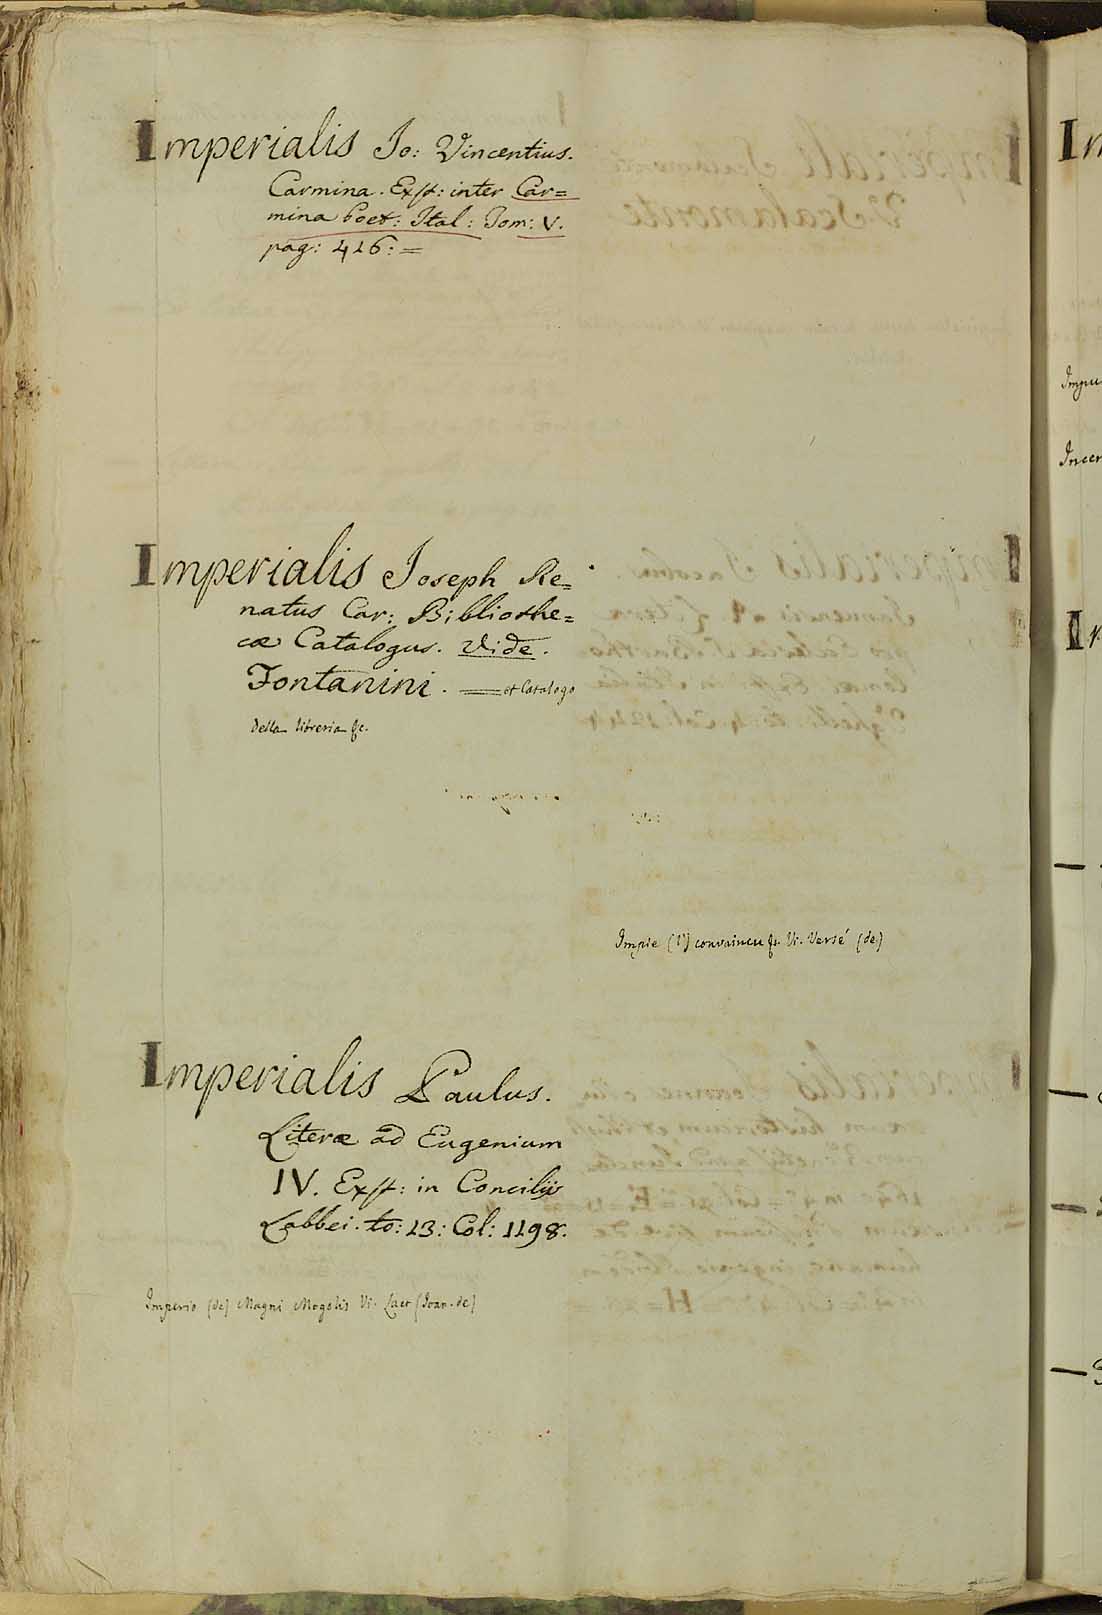 Imperialis Jo: Vincentius.
Carmina. Exst: inter Car=
mina Poet: Ital: Tom: V.
pag: 416: =
Imperialis Joseph Re=
natus Car: Bibliothe=
cæ Catalogus. Vide.
Fontanini. — et Catalogo
della libreria &c.
Impie (l') convaincu &c. Vi. Versé (de)
Imperialis Paulus.
Literæ ad Eugenium
IV. Exst: in Conciliis
Labbei. to: 13: Col: 1198.
Imperio (de) Magni Mogolis Vi. Laet (Joan. de)